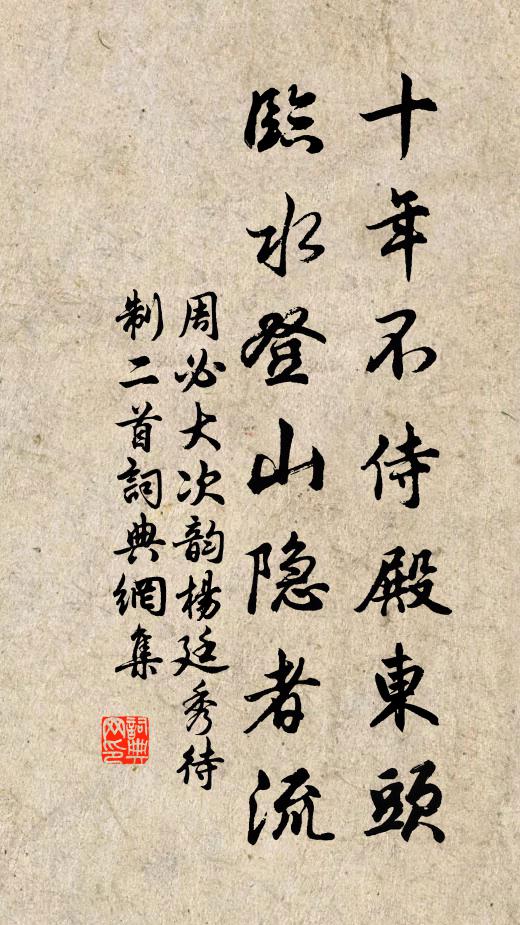 十年不侍殿東頭
臨水登山隐者流
周必大次韵楊廷秀待
制二首詞典網集
詞典網印